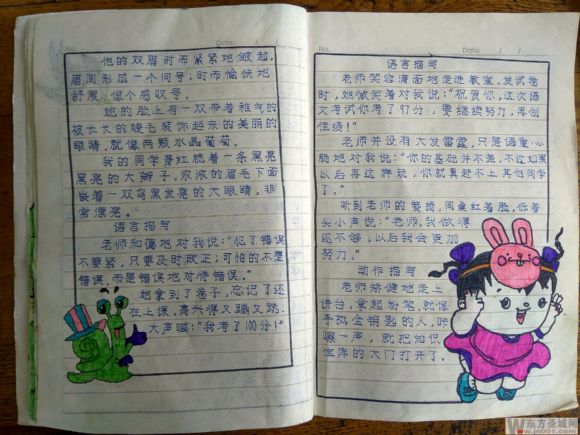 No.
Date: / /
他的双眉时而紧紧地皱起，
眉间形成一个问号；时而愉快地
舒展，像个感叹号。
她的脸上有一双带着稚气的
被长长的睫毛装饰起来的美丽的
眼睛，就像两颗水晶葡萄。
我的同学萧红梳着一条黑亮
黑亮的大辫子，浓浓的眉毛下面
嵌着一双乌黑发亮的大眼睛，非
常漂亮。
语言描写
老师和蔼地对我说：“犯了错误
不要紧，只要及时改正；可怕的不是
错误，而是错误地对待错误。”
她拿到了卷子，忘记了还
在上课，高兴得又蹦又跳，
大声喊：“我考了100分！”
No.
Date: / /
语言描写
老师笑容满面地走进教室，发试卷
时，她微笑着对我说：“祝贺你，这次语
文考试你考了97分，要继续努力，再创
佳绩！”
老师并没有大发雷霆，只是语重心
肠地对我说：“你的基础并不差，不过如果
以后再这样玩，你就真赶不上其他同学
了。”
听到老师的，同桌红着脸，低着
头小声说：“老师，我做得
还不够，以后我会更加
努力。”
动作描写
老师矫健地走上
讲台，拿起粉笔，就像
手执金钥匙的人，咔
嚓一声，就把知识
宝库的大门打开了。
东方圣城网
www.jn001.com